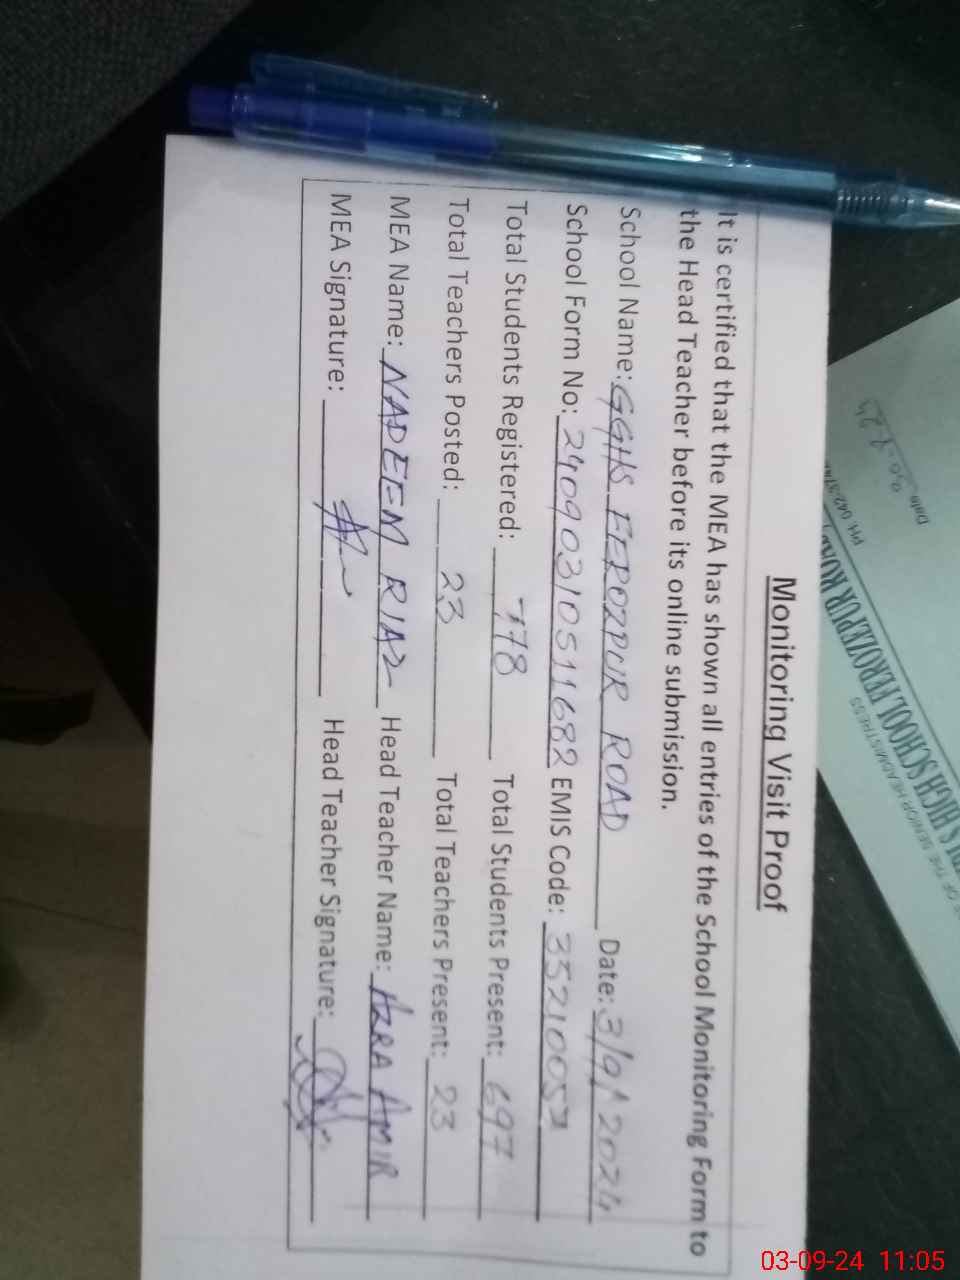 Monitoring Visit Proof
It is certified that the MEA has shown all entries of the School Monitoring Form to
the Head Teacher before its online submission.
School Name: GGHS FEROZPUR ROAD Date: 3/9/2024
School Form No: 24090310511682 EMIS Code: 35210057
Total Students Registered: 778 Total Students Present: 697
Total Teachers Posted: 23 Total Teachers Present: 23
MEA Name: NADEEM RIAZ Head Teacher Name: AZRA AMIR
MEA Signature: Head Teacher Signature:
OF THE SENIOR HEADMISTRESS
HIGH SCHOOL FEROZEPUR ROAD,
PH: 042-
Date
03-09-24 11:05